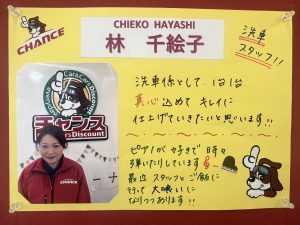 CHANCE
CHIEKO HAYASHI
林 千絵子
洗車
スタッフ!!
Car&Cars Discount
チャンス
CarsDiscount
CHANCE
洗車係として、1台1台
真心込めて キレイに
仕上げていきたいと思います!!
ピアノが好きで 時々
弾いたりしています
最近 スタッフとご飯に
行って 大喰いに
なりつつあります!!